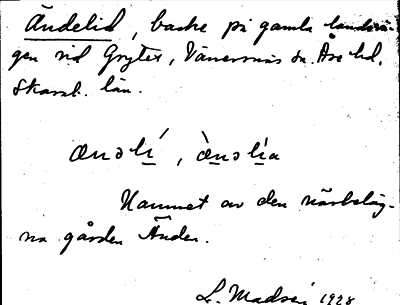 Ändelid, backe på gamla landsvä-
gen vid Grytet, Vänersnäs sn. Åse hd.
Skarab. län.
ænəlí, æ̀nəlía
Namnet av den närbeläg-
na gården Änden.
L. Madsén 1928